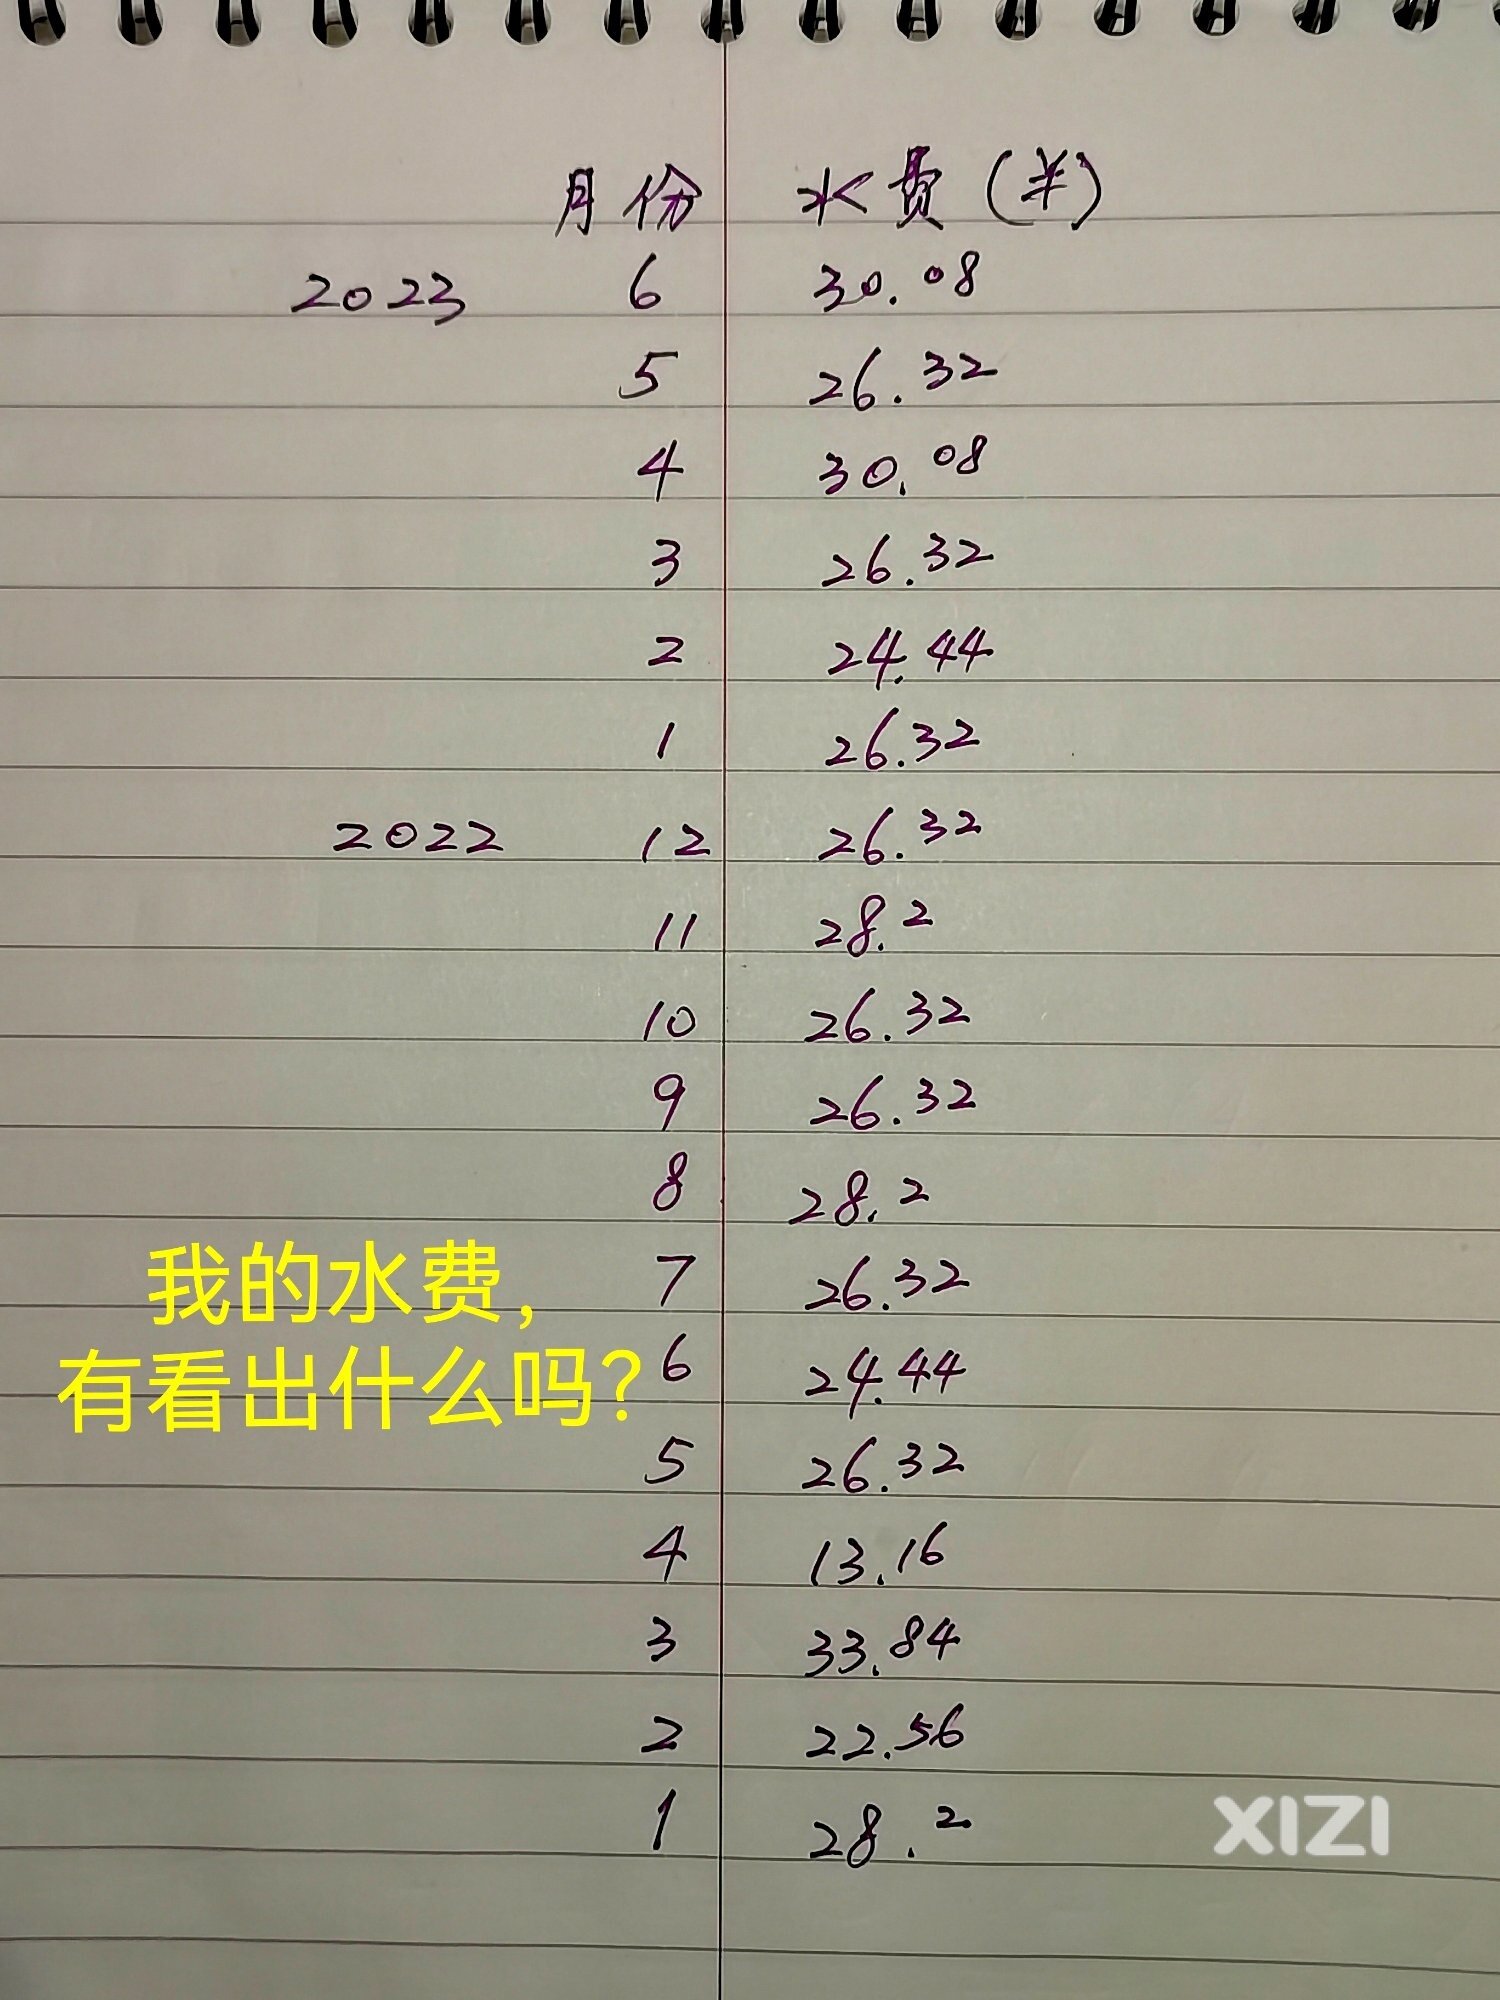 月份 水费(¥)
2023 6 30.08
5 26.32
4 30.08
3 26.32
2 24.44
1 26.32
2022 12 26.32
11 28.2
10 26.32
9 26.32
8 28.2
7 26.32
6 24.44
5 26.32
4 13.16
3 33.84
2 22.56
1 28.2
我的水费,
有看出什么吗?
XIZI